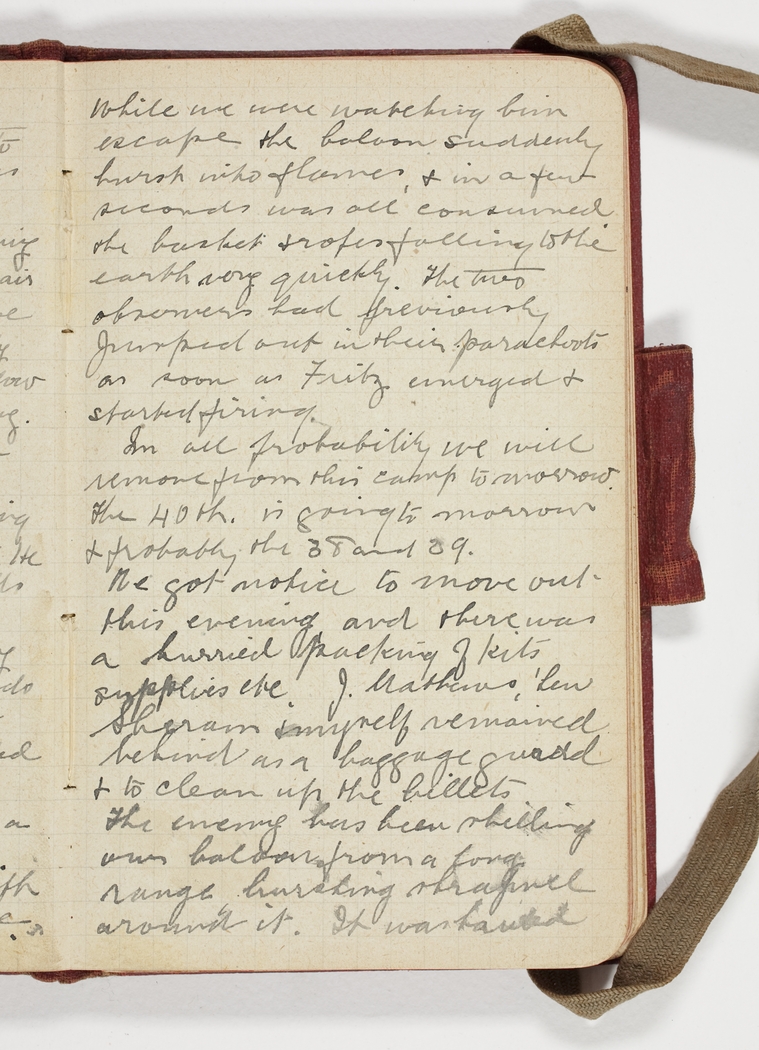 While we were watching him
escape the baloon suddenly
burst into flames, & in a few
seconds was all consumed
the basket & ropes falling to the
earth very quickly. The two
observers had previously
Jumped out in their parachoots
as soon as Fritz emerged &
started firing.
In all probability we will
remove from this camp to morrow.
The 40th. is going to morrow
& probably the 38 and 39.
We got notice to move out
this evening and there was
a hurried packing of kits
supplies etc. J. Mathews, Len
Sheram & myself remained
behind as a baggage guard
& to clean up the billets
The enemy has been shelling
our baloon from a long
range, bursting shrapnel
around it. It was hauled